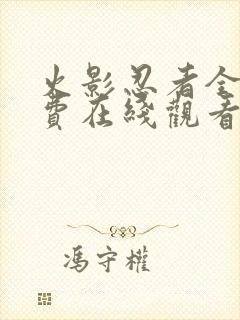 火影忍者全
費在綫觀看
馮守權